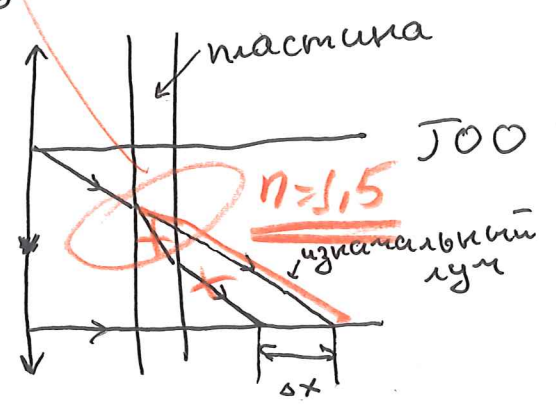 пластина
ГОО
n=1,5
изначальный
луч
Δx